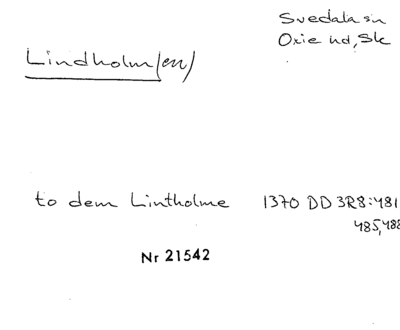 Svedala sn
Oxie hd, Sk
Lindholm(en)
to dem Lintholme 1370 DD 3R8:481
485, 488
Nr 21542